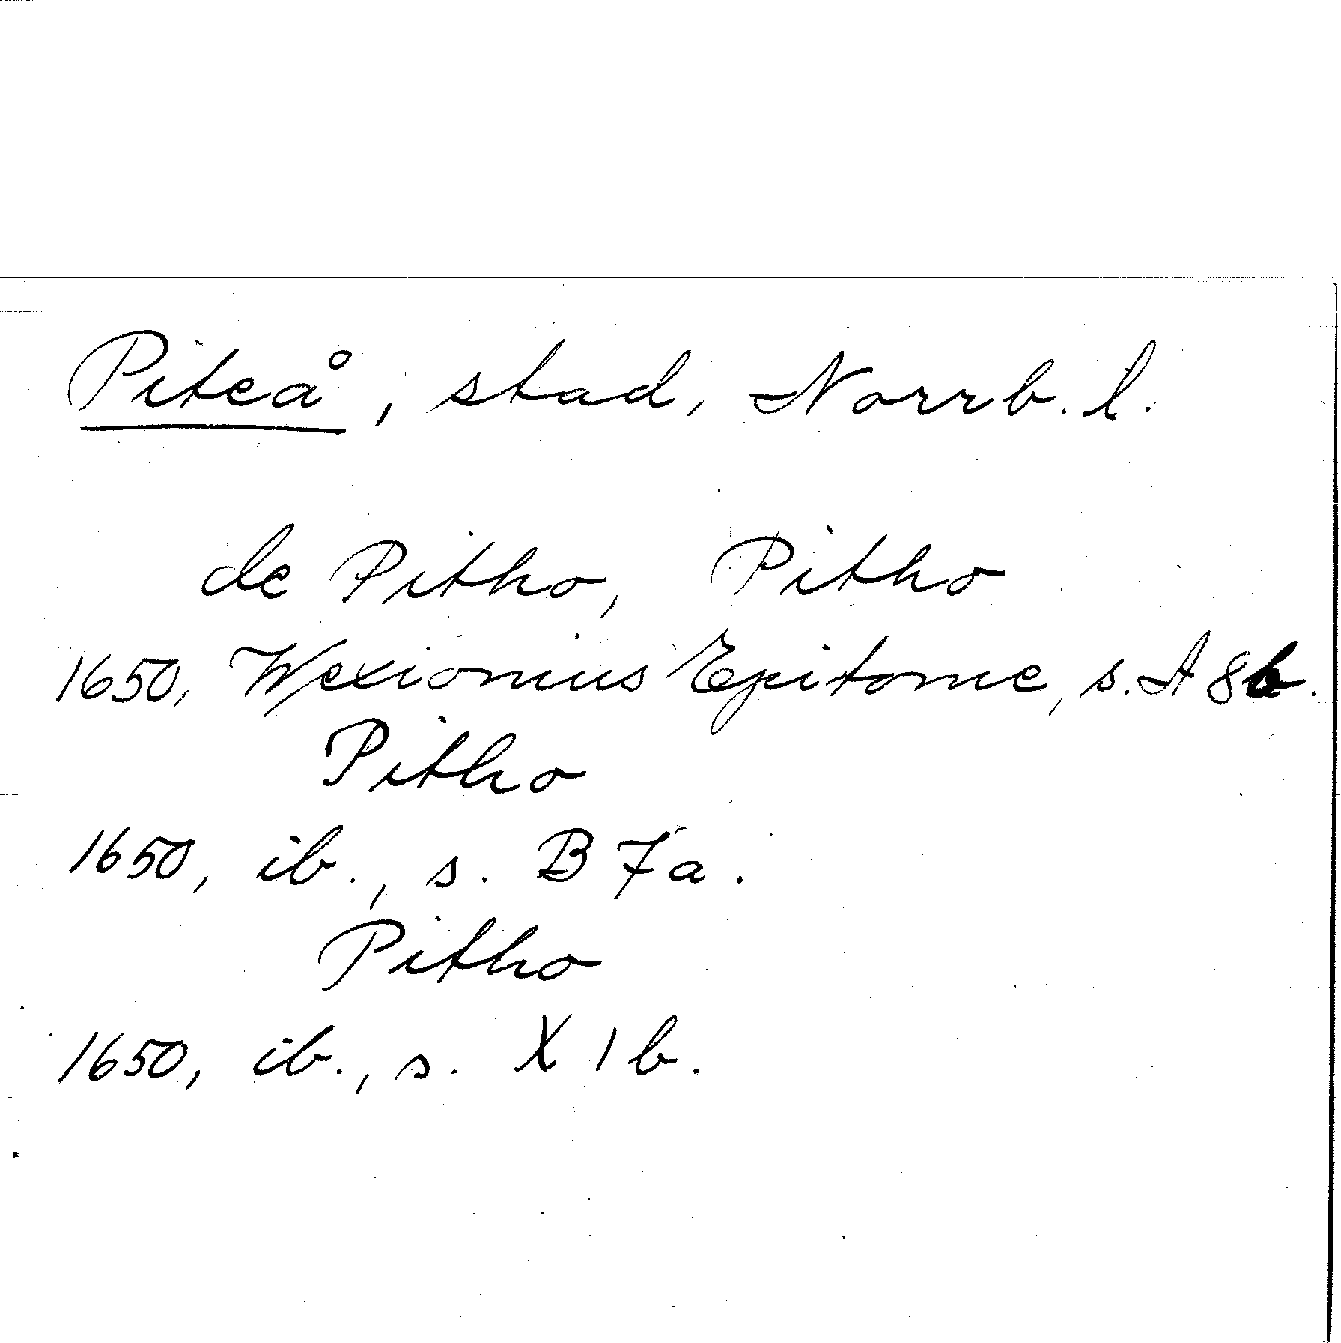 Piteå, stad, Norrb. l.
de Pitho, Pitho
1650, Wexionius Epitome, s. A 8b.
Pitho
1650, ib., s. B 7a.
Pitho
1650, ib., s. X 1 b.